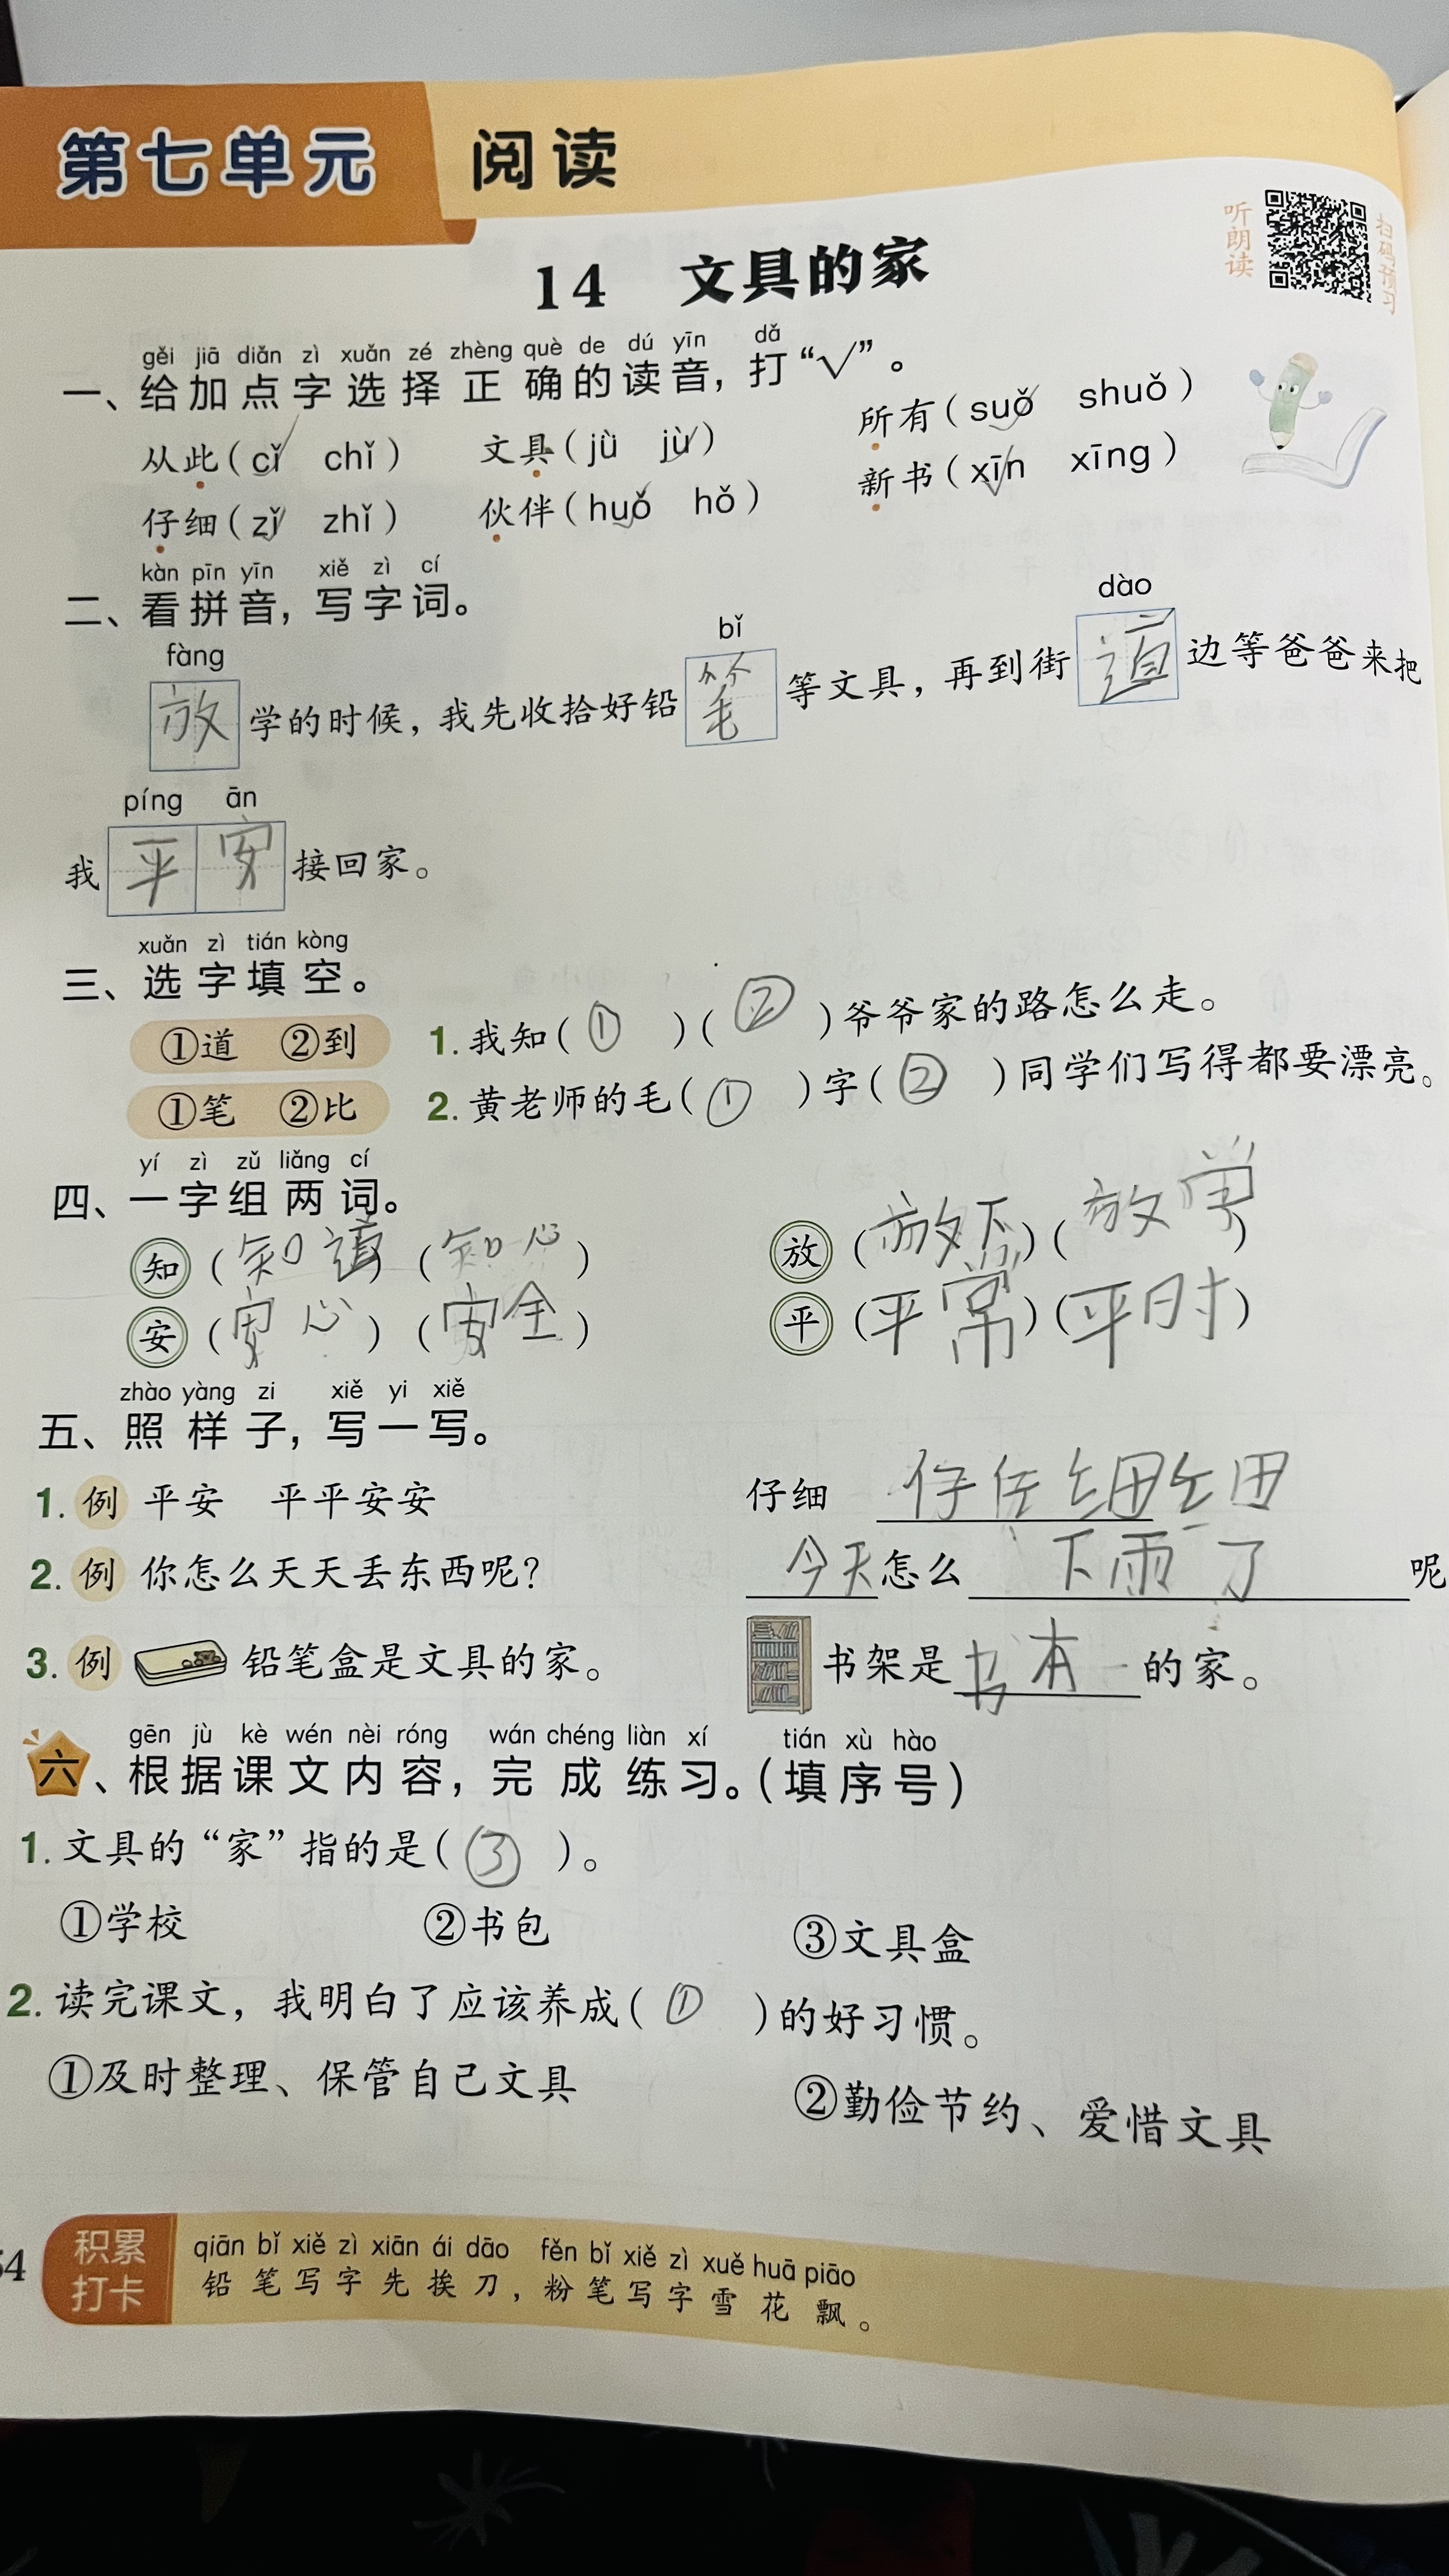 第七单元 阅读
听朗读
扫码预习
14 文具的家
gěi jiā diǎn zì xuǎn zé zhèng què de dú yīn dǎ
一、给加点字选择正确的读音，打“√”。
从此（cǐ✓ chǐ） 文具（jù jù✓） 所有（suǒ✓ shuǒ）
仔细（zǐ✓ zhǐ） 伙伴（huǒ✓ hǒ） 新书（xīn✓ xīng）
kàn pīn yīn xiě zì cí
二、看拼音，写字词。
fàng bǐ dào
放学的时候，我先收拾好铅笔等文具，再到街道边等爸爸来把
píng ān
我平安接回家。
xuǎn zì tián kòng
三、选字填空。
①道 ②到 1. 我知（①）（②）爷爷家的路怎么走。
①笔 ②比 2. 黄老师的毛（①）字（②）同学们写得都要漂亮。
yí zì zǔ liǎng cí
四、一字组两词。
知（知道）（知心） 放（放下）（放学）
安（安心）（安全） 平（平常）（平时）
zhào yàng zi xiě yi xiě
五、照样子，写一写。
1. 例 平安 平平安安 仔细 仔仔细细
2. 例 你怎么天天丢东西呢？ 今天怎么下雨了呢
3. 例 铅笔盒是文具的家。 书架是书本的家。
gēn jù kè wén nèi róng wán chéng liàn xí tián xù hào
六、根据课文内容，完成练习。（填序号）
1. 文具的“家”指的是（③）。
①学校 ②书包 ③文具盒
2. 读完课文，我明白了应该养成（①）的好习惯。
①及时整理、保管自己文具 ②勤俭节约、爱惜文具
积累打卡
qiān bǐ xiě zì xiān ái dāo fěn bǐ xiě zì xuě huā piāo
铅笔写字先挨刀，粉笔写字雪花飘。